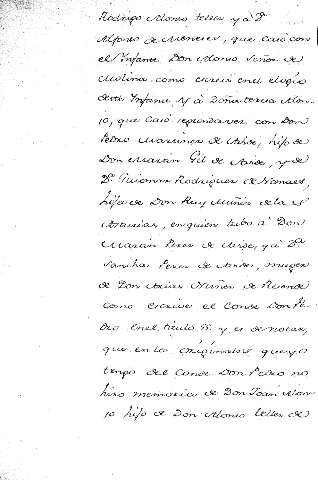 Rodrigo Alonso tellez y à Dª
Alfonso de Meneses, que Casó con
el Infante Don Alonso Señor de
Molina como escrevi en el elogio
deste Infante. Y à Doña teresa Alon-
so, que Casó segunda vez con Don
Pedro Martinez de hijo de
Don Martin Gil de y de
Dª Guiomar Rodriguez de
hija de Don Ruy Muñiz de las
Asturias, en quien tubo à Don
Martin Perez de y à Dª
Sancha Perez de muger
de Don Arias Nuñez de
como escrive el Conde Don Pe-
dro en el titulo y es de notar,
que en los Originales que yo
tengo del Conde Don Pedro no
hizo memoria de Don Joan Alon-
so hijo de Don Alonso tellez de